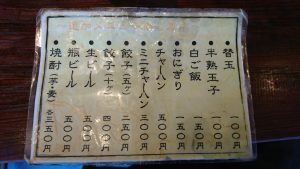 ・替玉 一〇〇円
・半熟玉子 一〇〇円
・白ご飯 一五〇円
・おにぎり 一五〇円
・チャーハン 五〇〇円
・ミニチャーハン 三〇〇円
・餃子(五ヶ) 二五〇円
・餃子(十ヶ) 四〇〇円
・生ビール 五〇〇円
・瓶ビール 五〇〇円
・焼酎(芋・麦) 各三五〇円